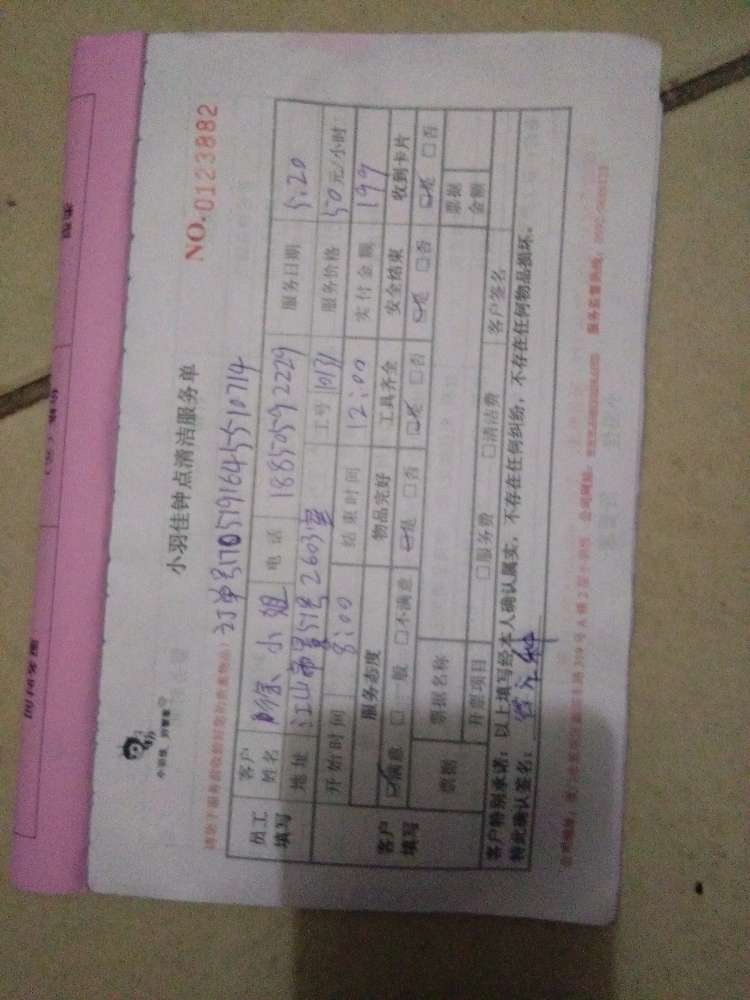 小羽佳钟点清洁服务单
NO.0123882
小羽佳 到家事
(请您于服务前收拾好您的贵重物品) 订单号1705191645510714
员工填写 客户姓名 小姐 电话 18850592229 服务日期 5.20
地址 江山帝景51号2603室 工号 10131 服务价格 50元/小时
开始时间 8:00 结束时间 12:00 实付金额 199
客户填写 服务态度 物品完好 工具齐全 安全结束 收到卡片
☑满意 □一般 □不满意 ☑是 □否 ☑是 □否 ☑是 □否 ☑是 □否
票据 票据名称 票据金额
开票项目 □服务费 □清洁费 客户签名
客户特别承诺:以上填写经本人确认属实,不存在任何纠纷,不存在任何物品损坏。
特此确认签名:
公司网站: 服务监督热线: